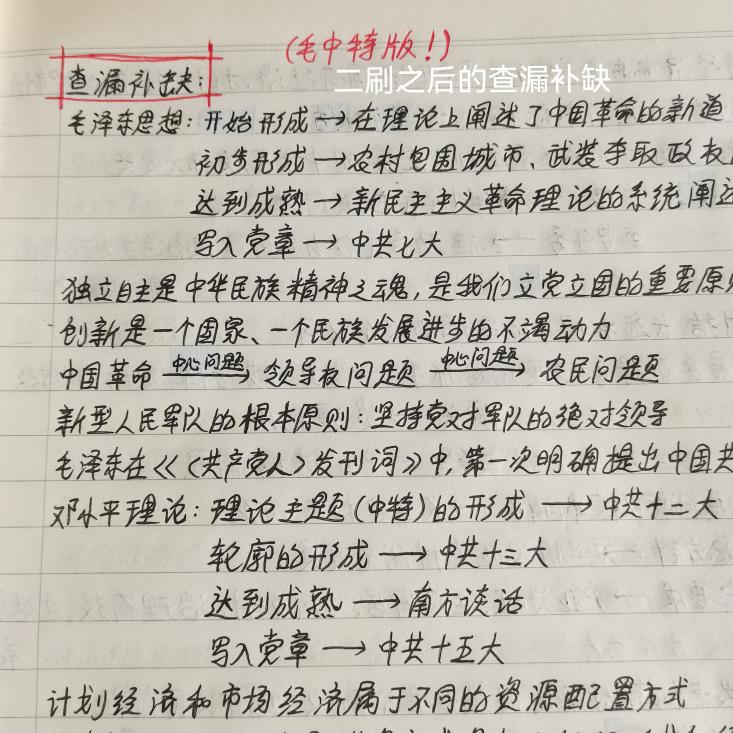 (毛中特版！)
查漏补缺：
二刷之后的查漏补缺
毛泽东思想：开始形成→在理论上阐述了中国革命的新道
初步形成→农村包围城市、武装夺取政权
达到成熟→新民主主义革命理论的系统阐述
写入党章→中共七大
独立自主是中华民族精神之魂，是我们立党立国的重要原则
创新是一个国家、一个民族发展进步的不竭动力
中国革命 中心问题→ 领导权问题 中心问题→ 农民问题
新型人民军队的根本原则：坚持党对军队的绝对领导
毛泽东在《〈共产党人〉发刊词》中，第一次明确提出中国共
邓小平理论：理论主题(中特)的形成→中共十二大
轮廓的形成→中共十三大
达到成熟→南方谈话
写入党章→中共十五大
计划经济和市场经济属于不同的资源配置方式